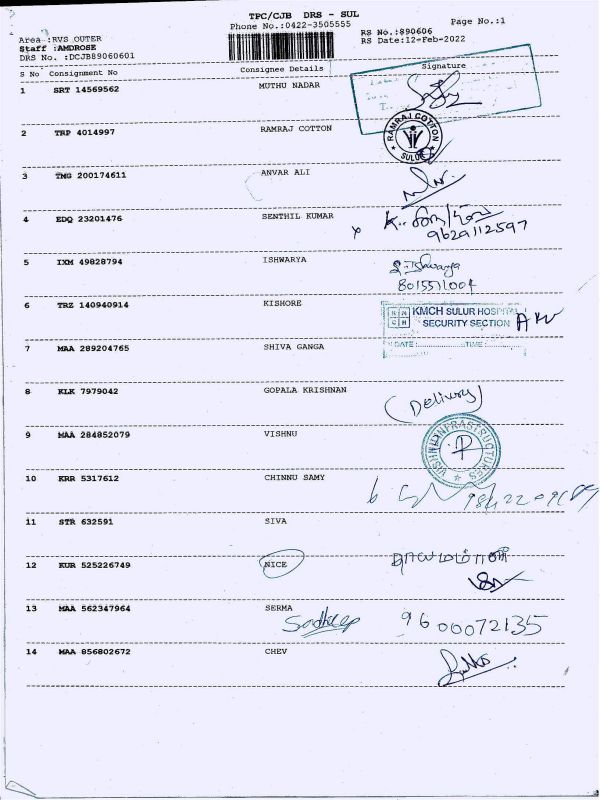 TPC/CJB DRS - SUL
Phone No.:0422-3505555
Page No.:1
Area :RVS OUTER
Staff :AMDROSE
DRS No. :DCJB89060601
RS No.:890606
RS Date:12-Feb-2022
S No Consignment No Consignee Details Signature
1 SRT 14569562 MUTHU NADAR
2 TRP 4014997 RAMRAJ COTTON
RAMRAJ COTTON
SULUR
3 TMG 200174611 ANVAR ALI
4 EDQ 23201476 SENTHIL KUMAR
9629112597
5 IXM 49828794 ISHWARYA
S. Ishwarya
8015571004
6 TRZ 140940914 KISHORE
KMCH SULUR HOSPITAL
SECURITY SECTION
DATE: TIME:
7 MAA 289204765 SHIVA GANGA
8 KLK 7979042 GOPALA KRISHNAN
(Delivery)
9 MAA 284852079 VISHNU
VISHNU INFRASTRUCTURES
10 KRR 5317612 CHINNU SAMY
11 STR 632591 SIVA
12 KUR 525226749 NICE
13 MAA 562347964 SERMA
9600072135
14 MAA 856802672 CHEV